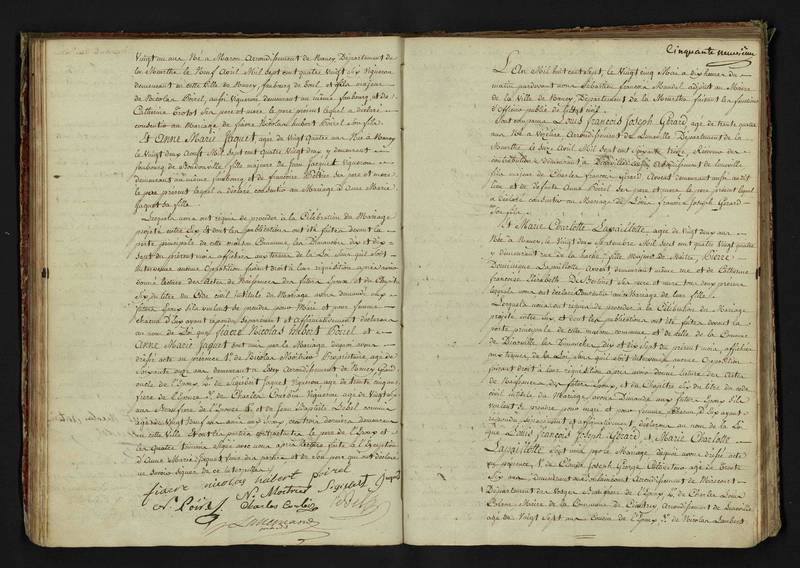 Vingt un ans Né à Maron Arrondissement de Nancy Département de
la Meurthe le Neuf Avril Mil Sept cent quatre Vingt Six Vigneron
demeurant en cette Ville de Nancy, faubourg de et fils majeur
de Nicolas Poirel, aussi Vigneron demeurant au même faubourg et de
Catherine ses pere et mere, le pere présent lequel a déclaré
consentir au Mariage de fiacre Nicolas hubert Poirel son fils.
Et Anne Marie Jaquet agée de Vingt quatre ans Née à Nancy
le Vingt deux Aoust Mil Sept cent quatre Vingt deux y demeurant
faubourg de fille majeure de Jean Jacquet Vigneron
demeurant au même faubourg et de françoise ses pere et mere
le pere présent lequel a déclaré consentir au Mariage d'Anne Marie
Jaquet sa fille.
Lesquels nous ont requis de procéder à la Célébration du Mariage
projetté entre Eux et dont les publications ont été faites devant la
porte principale de cette maison Commune, les Dimanches dix et dix
sept du présent mois, affichées aux termes de la Loi, sans qu'il soit
intervenu aucune Opposition, faisant droit à leur réquisition après avoir
donné lecture des Actes de Naissance des futurs Epoux et du Chapitre
Six du titre du Code civil intitulé du Mariage, avons demandé aux
futurs Epoux s'ils veulent se prendre pour Mari et pour femme
chacun d'Eux ayant répondu séparément et affirmativement déclarons
au nom de la Loi que fiacre Nicolas hubert Poirel et
Anne Marie Jaquet sont unis par le Mariage, dequoi avons
dressé acte en présence de Nicolas Propriétaire, agé de
Soixante onze ans demeurant à Arrondissement de Nancy Grand
oncle de l'Epoux, de Sigisbert Jaquet Vigneron agé de trente cinq ans
frere de l'Epouse, de Charles Courbin Vigneron agé de Vingt six
ans de l'Epouse et de Jean Baptiste commis
agé de Vingt Neuf ans
en cette Ville Et ont les parties le pere de l'Epoux et
les quatre témoins signé avec nous après lecture faite à l'exception
d'Anne Marie Jaquet l'une des parties et de son pere qui ont déclaré
ne savoir signer de ce interpellés
fiacre nicolas hubert poirel
N. Poirel N. Sigisbert Jaquet
Charles Courbin
Cinquante neuvième
L'An Mil huit cent Sept, le Vingt cinq Mai à dix heures du
matin pardevant nous Sébastien françois Mandel adjoint au Maire
de la Ville de Nancy, Département de la Meurthe, faisant les fonctions
d'Officier public de l'Etat civil
Sont comparus Louis françois Joseph Gérard, agé de trente quatre
ans Né à Arrondissement de Lunéville Département de la
Meurthe le Seize Avril Mil Sept cent Soixante treize, Receveur des
contributions demeurant à Arrondissement de Lunéville
fils majeur de Charles françois Gérard Avocat demeurant audit
lieu et de défunte Anne ses pere et mere le pere présent lequel
a déclaré consentir au Mariage de Louis françois Joseph Gérard
son fils.
Et Marie Charlotte Lapaillotte, agée de Vingt deux ans
Née à Nancy, le Vingt Septembre Mil Sept cent quatre Vingt quatre
y demeurant rue de la hache, fille Majeure de Maitre Pierre
Dominique Lapaillotte Avocat demeurant même rue et de Catherine
françoise Elisabeth ses pere et mere tous deux présens
lesquels nous ont déclaré consentir au Mariage de leur fille.
Lesquels nous ont requis de procéder à la Célébration du Mariage
projetté entre Eux, et dont les publications ont été faites devant la
porte principale de cette maison commune et de celle de la Commune
de les Dimanches dix et dix sept du présent mois, affichées
aux termes de la Loi, sans qu'il soit intervenu aucune Opposition
faisant droit à leur réquisition après avoir donné lecture des Actes
de Naissance des futurs Epoux, et du Chapitre Six du titre du code
civil intitulé du Mariage avons demandé aux futurs Epoux s'ils
veulent se prendre pour mari et pour femme, chacun d'Eux ayant
répondu séparément et affirmativement, déclarons au nom de la Loi
que Louis françois Joseph Gérard, et Marie Charlotte
Lapaillotte sont unis par le Mariage dequoi avons dressé acte
en présence de Claude Joseph George agé de trente
Six ans, demeurant à Arrondissement de Mirecourt
Département des Vosges de l'Epoux, de Charles Louis
Maire de la Commune de Arrondissement de Lunéville
agé de Vingt Sept ans Cousin de l'Epoux de Nicolas Lambert